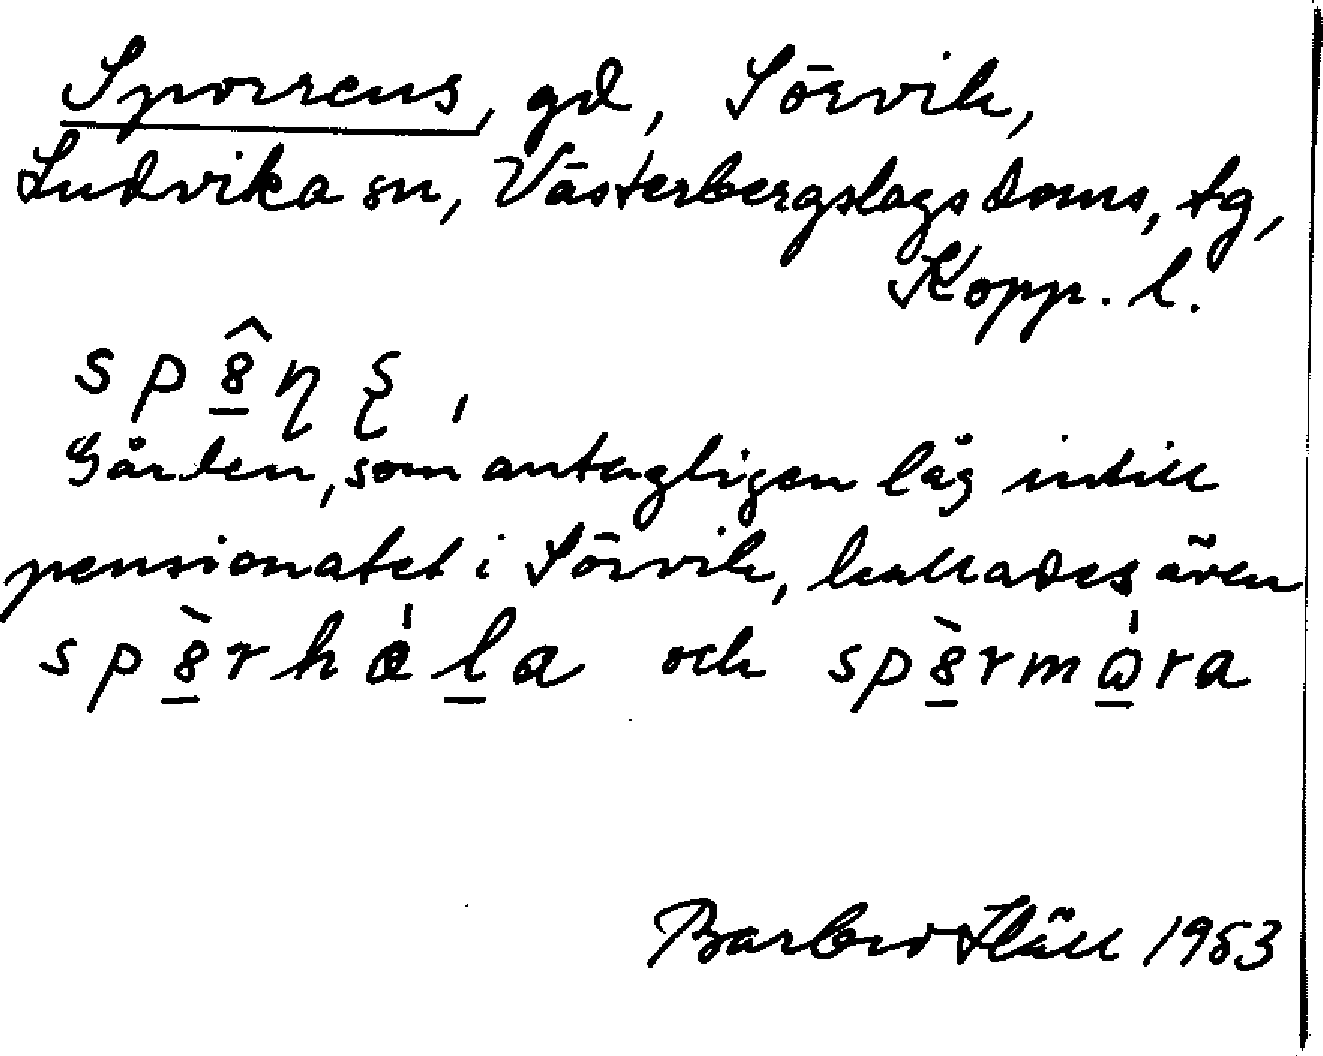 Sporrens, gd, Sörvik,
Ludvika sn, Västerbergslags doms. tg,
Kopp. l.
Gården, som antagligen låg intill
pensionatet i Sörvik, kallades även
och
Barbro Häll 1953